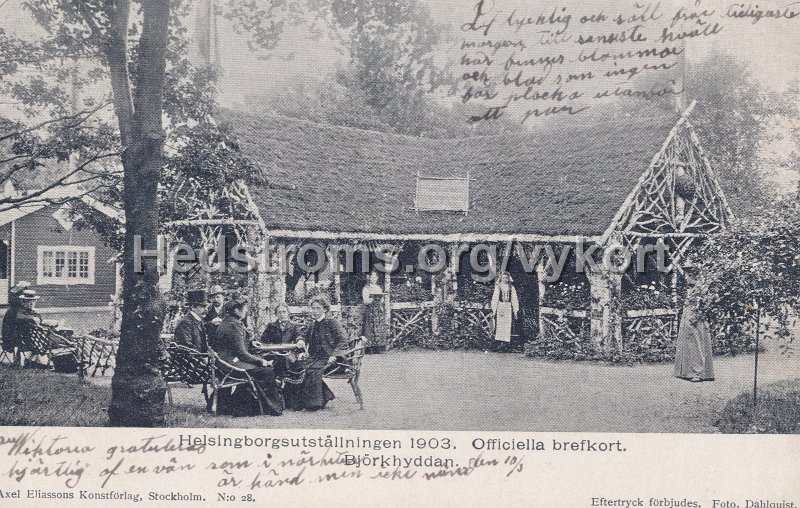 Lef lycklig och säll från tidigaste
morgon till senaste kväll
här finnes blommor
och blad som ingen
bör plocka utanför
ett par
Hedstroms.org/vykort
Helsingborgsutställningen 1903. Officiella brefkort.
Björkhyddan.
Wiktoria gratuleras
hjärtlig af en vän som i närheten
är händ men icke den 10/3
Axel Eliassons Konstförlag, Stockholm. N:o 28.
Eftertryck förbjudes. Foto. Dahlquist.